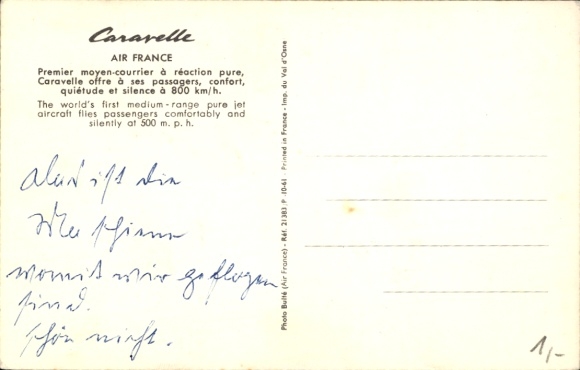 Caravelle
AIR FRANCE
Premier moyen-courrier à réaction pure,
Caravelle offre à ses passagers, confort,
quiétude et silence à 800 km/h.
The world's first medium-range pure jet
aircraft flies passengers comfortably and
silently at 500 m. p. h.
ist die
Maschiene
womit wir geflogen
sind.
schön nicht.
Photo Buité (Air France) - Réf. 21383 P 10-61 - Printed in France - Imp. du Val d'Osne
1,-